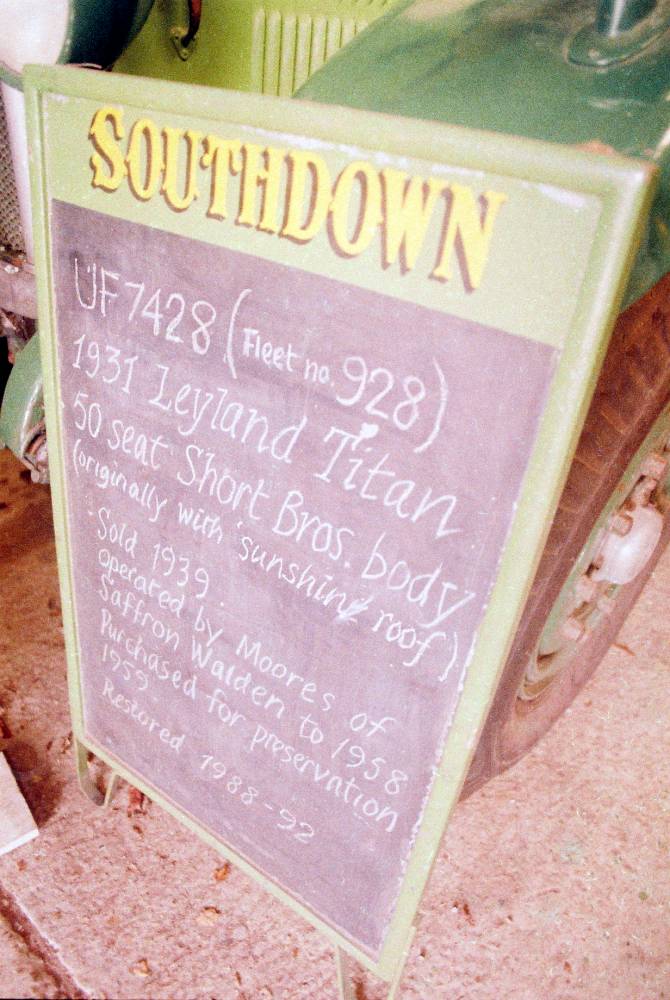 SOUTHDOWN
UF 7428 (Fleet no. 928)
1931 Leyland Titan
50 seat Short Bros. body
(originally with 'sunshine roof')
Sold 1939.
Operated by Moores of
Saffron Walden to 1958
Purchased for preservation
1959.
Restored 1988-92